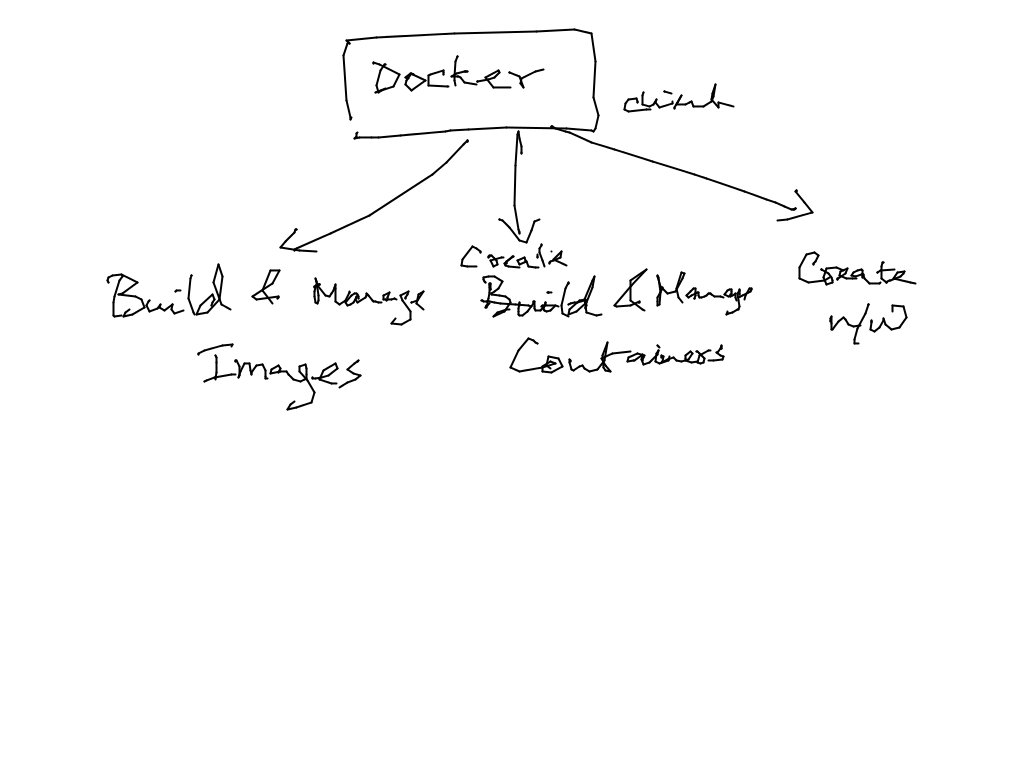 Docker
Build & Manage
Images
Create
Build & Manage
Containers
Create
n/w